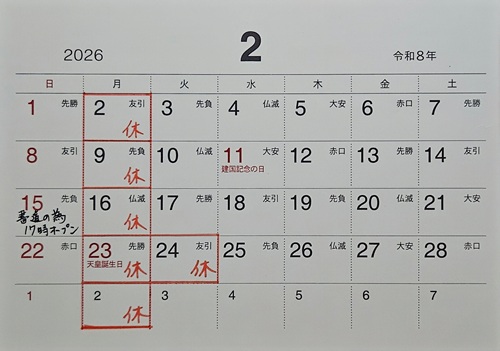 2026 2 令和8年
日 月 火 水 木 金 土
1 先勝 2 友引 3 先負 4 仏滅 5 大安 6 赤口 7 先勝
休
8 友引 9 先負 10 仏滅 11 大安 12 赤口 13 先勝 14 友引
休 建国記念の日
15 先負 16 仏滅 17 大安 18 友引 19 先負 20 仏滅 21 大安
書道の為 休
17時オープン
22 赤口 23 先勝 24 友引 25 先負 26 仏滅 27 大安 28 赤口
天皇誕生日 休 休
1 2 3 4 5 6 7
休